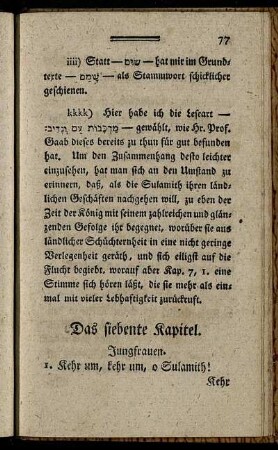 77
iiii) Statt — שׂוּם — hat mir im Grund-
texte — שָׁמֵם — als Stammwort schicklicher
geschienen.
kkkk) Hier habe ich die Lesart —
מַרְכְּבוֹת עַם וְנָדִיב: — gewählt, wie Hr. Prof.
Gaab dieses bereits zu thun für gut befunden
hat. Um den Zusammenhang desto leichter
einzusehen, hat man sich an den Umstand zu
erinnern, daß, als die Sulamith ihren länd-
lichen Geschäften nachgehen will, zu eben der
Zeit der König mit seinem zahlreichen und glän-
zenden Gefolge ihr begegnet, worüber sie aus
ländlicher Schüchternheit in eine nicht geringe
Verlegenheit geräth, und sich eiligst auf die
Flucht begiebt, worauf aber Kap. 7, 1. eine
Stimme sich hören läßt, die sie mehr als ein-
mal mit vieler Lebhaftigkeit zurückruft.
Das siebente Kapitel.
Jungfrauen.
1. Kehr um, kehr um, o Sulamith!
Kehr